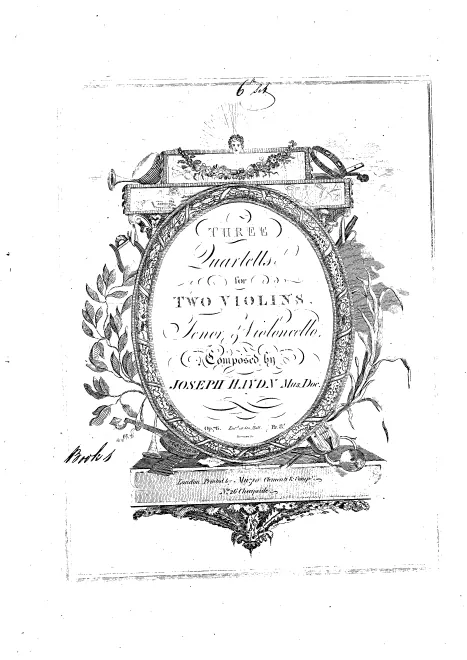 6th Set
THREE
Quartetts,
for
TWO VIOLINS,
Tenor, & Violoncello,
Composed by
JOSEPH HAYDN Mus. Doc.
Op. 76. Ent. at Sta. Hall. Pr. 8s.
Books
London Printed by Muzio Clementi & Compy.
No. 26 Cheapside